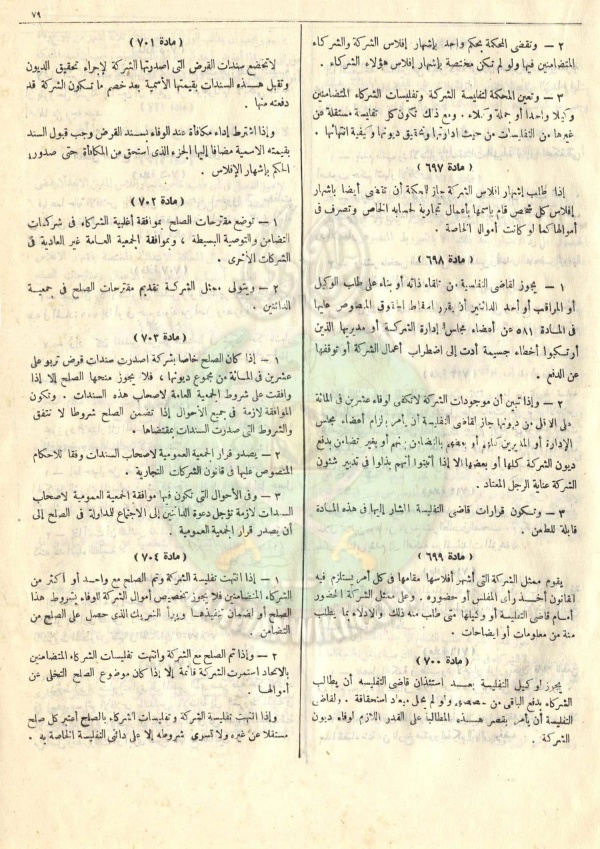 ٧٩
٢ — وتقضى المحكمة بحكم واحد بإشهار إفلاس الشركة والشركاء
المتضامنين فيها ولو لم تكن مختصة بإشهار إفلاس هؤلاء الشركاء .
٣ — وتعين المحكمة لتفليسة الشركة وتفليسات الشركاء المتضامنين
وكيلا واحدا أو جملة وكلاء . ومع ذلك تكون كل تفليسة مستقلة عن
غيرها من التفليسات من حيث ادارتها وتحقيق ديونها وكيفية انتهائها .
( مادة ٦٩٧
إذا طلب إشهار افلاس الشركة جاز للمحكمة أن تقضى أيضا بإشهار
إفلاس كل شخص قام باسمها بأعمال تجارية لحسابه الخاص وتصرف فى
أموالها كما لو كانت أمواله الخاصة .
( مادة ٦٩٨ )
١ — يجوز لقاضى التفليسة من تلقاء ذاته أو بناء على طلب الوكيل
أو المراقب أو أحد الدائنين أن يقرر اسقاط الحقوق المنصوص عليها
فى المادة ٥٨١ عن أعضاء مجلس إدارة الشركة أو مديريها الذين
ارتكبوا أخطاء جسيمة أدت إلى اضطراب أعمال الشركة أو توقفها
عن الدفع .
٢ — وإذا تبين أن موجودات الشركة لا تكفى لوفاء عشرين فى المائة
على الاقل من ديونها جاز لقاضى التفليسة أن يأمر بإلزام أعضاء مجلس
الإدارة أو المديرين كلهم أو بعضهم بالتضامن بينهم أو بغير تضامن بدفع
ديون الشركة كلها أو بعضها الا إذا أثبتوا أنهم بذلوا فى تدبير شئون
الشركة عناية الرجل المعتاد .
٣ — وتكون قرارات قاضى التفليسة المشار إليها فى هذه المادة
قابلة للطعن .
( مادة ٦٩٩ )
يقوم ممثل الشركة التى أشهر أفلاسها مقامها فى كل أمر يستلزم فيه
القانون أخذ رأى المفلس أو حضوره . وعلى ممثل الشركة الحضور
أمام قاضى التفليسة أو وكيلها متى طلب منه ذلك والادلاء بما يطلب
منه من معلومات أو ايضاحات .
( مادة ٧٠٠ )
يجوز لوكيل التفليسة بعد استئذان قاضى التفليسه أن يطالب
الشركاء بدفع الباقى من حصصهم ولو لم يحل ميعاد استحقاقه . ولقاضى
التفليسة أن يأمر بقصر هذه المطالبة على القدر اللازم لوفاء ديون
الشركة .
( مادة ٧٠١ )
لا تخضع سندات القرض التى اصدرتها الشركة لإجراء تحقيق الديون
وتقبل هذه السندات بقيمتها الأسمية بعد خصم ما تكون الشركة قد
دفعته منها .
وإذا اشترط إداء مكافأة عند الوفاء بسند القرض وجب قبول السند
بقيمته الاسمية مضافا إليها الجزء الذى أستحق من المكافأة حتى صدور
الحكم بإشهار الإفلاس .
( مادة ٧٠٢ )
١ — توضع مقترحات الصلح بموافقة أغلبية الشركاء فى شركات
التضامن والتوصية البسيطة ، وبموافقة الجمعية العامة غير العادية فى
الشركات الأخرى .
٢ — ويتولى ممثل الشركة تقديم مقترحات الصلح فى جمعية
الدائنين .
( مادة ٧٠٣ )
١ — إذا كان الصلح خاصا بشركة اصدرت سندات قرض تربو على
عشرين فى المائة من مجموع ديونها ، فلا يجوز منحها الصلح إلا إذا
وافقت على شروط الجمعية العامة لاصحاب هذه السندات . وتكون
الموافقة لازمة فى جميع الأحوال إذا تضمن الصلح شروطا لا تتفق
والشروط التى صدرت السندات بمقتضاها .
٢ — يصدر قرار الجمعية العمومية لاصحاب السندات وفقا للاحكام
المنصوص عليها فى قانون الشركات التجارية .
٣ — وفى الأحوال التى تكون فيها موافقة الجمعية العمومية لاصحاب
السندات لازمة تؤجل دعوة الدائنين إلى الاجتماع للمداولة فى الصلح إلى
أن يصدر قرار الجمعية العمومية .
( مادة ٧٠٤ )
١ — إذا انتهت تفليسة الشركة وتم الصلح مع واحد أو أكثر من
الشركاء المتضامنين فلا يجوز تخصيص أموال الشركة للوفاء بشروط هذا
الصلح أو لضمان تنفيذها ويبرأ الشريك الذى حصل على الصلح من
التضامن
٢ — وإذا تم الصلح مع الشركة وانتهت تفليسات الشركاء المتضامنين
بالاتحاد استمرت الشركة قائمة إلا إذا كان موضوع الصلح التخلى عن
أموالها .
وإذا انتهت تفليسة الشركة وتفليسات الشركاء بالصلح أعتبر كل صلح
مستقلا عن غيره ولا تسرى شروطه إلا على دائنى التفليسة الخاصه به .